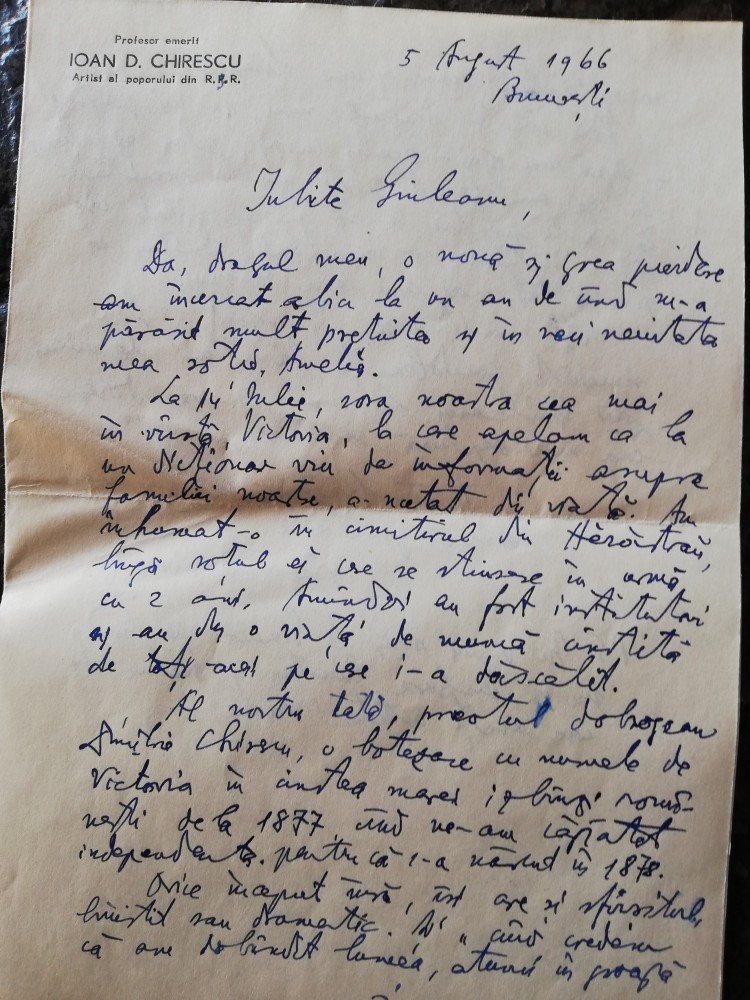 Profesor emerit
IOAN D. CHIRESCU
Artist al poporului din R.P.R.
5 August 1966
București
Iubite Giuleanu,
Da, dragul meu, o nouă și grea pierdere
am încercat abia la un an de când m-a
părăsit mult prețuita și în veci neuitata
mea soție, Amelia.
La 14 Iulie, sora noastra cea mai
în vârstă, Victoria, la care apelam ca la
un dicționar viu de informații asupra
familiei noastre, a-ncetat din viață. Am
înhumat-o în cimitirul din Herăstrău,
lîngă soțul ei care se stinsese în urmă
cu 2 ani. Amândoi au fost institutori
și au dus o viață de muncă cinstită
de toți acei pe care i-a dăscălit.
Al nostru tată, preotul dobrogean
Dimitrie Chirescu, o botezase cu numele de
Victoria în cinstea marei izbânzi româ-
nești de la 1877 când ne-am căpătat
independența. pentru că s-a născut în 1878.
Orice început însă, își are și sfîrșitul,
liniștit sau dramatic. Și "când credem
că am dobândit lumea, atunci în groapă